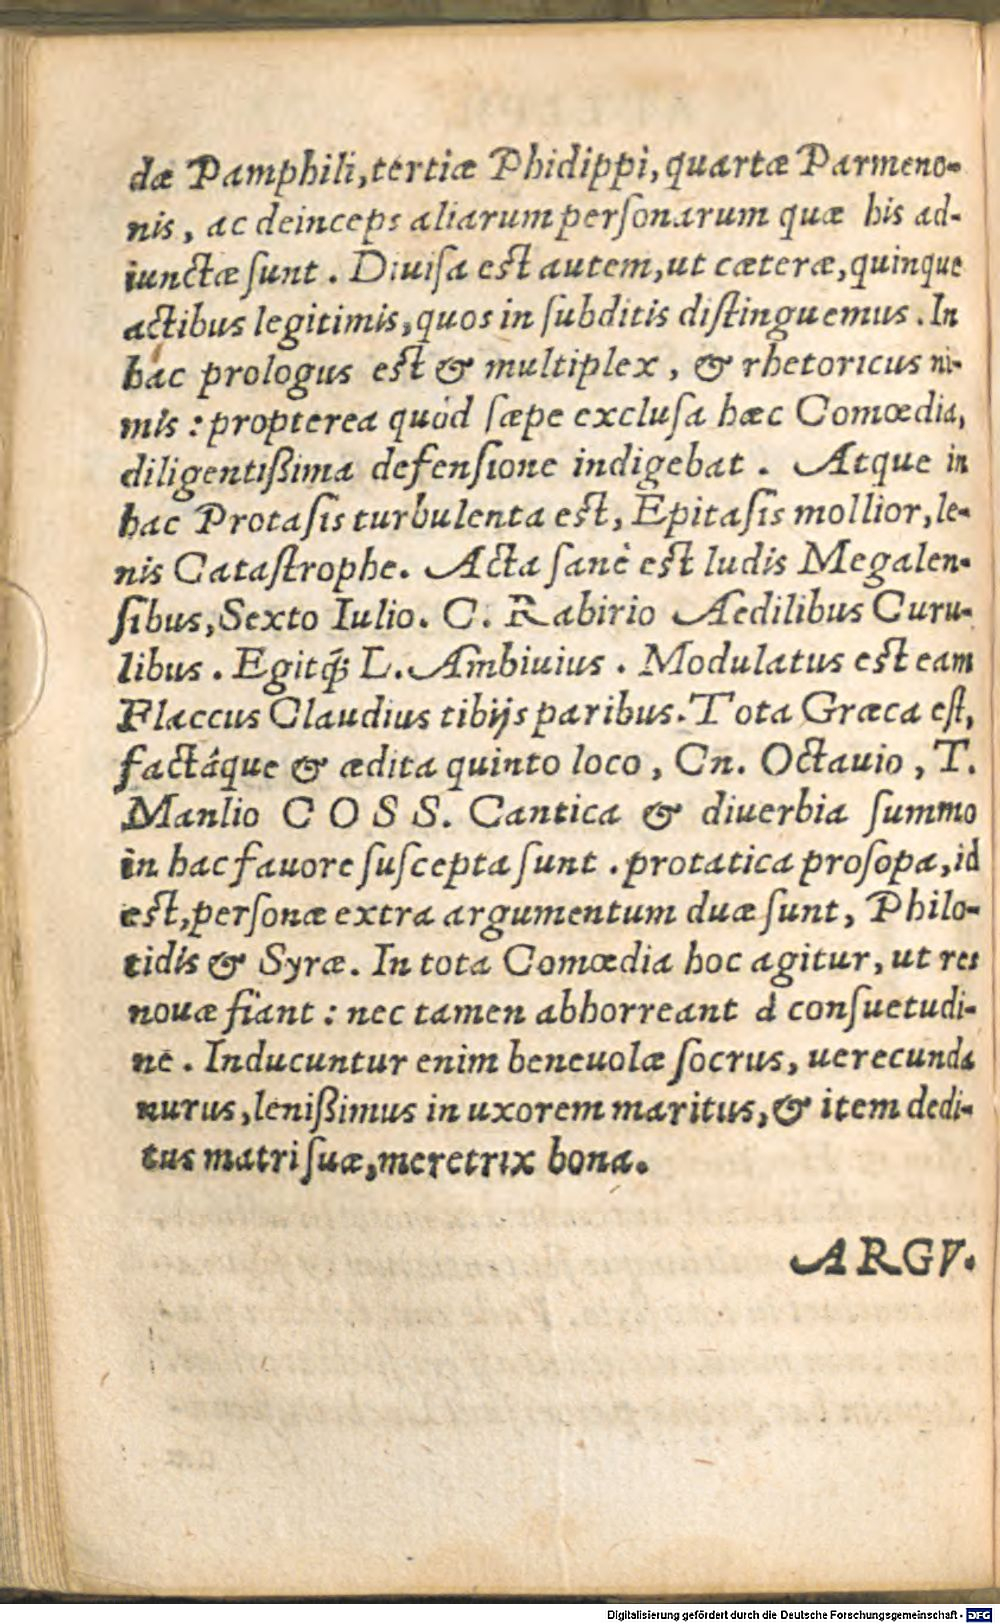 dæ Pamphili, tertiæ Phidippi, quartæ Parmeno-
nis, ac deinceps aliarum perſonarum quæ his ad-
iunctæ ſunt. Diuiſa eſt autem, ut cæteræ, quinque
actibus legitimis, quos in ſubditis diſtinguemus. In
hac prologus eſt & multiplex, & rhetoricus ni-
mis: propterea quòd ſæpe excluſa hæc Comœdia,
diligentißima defenſione indigebat. Atque in
hac Protaſis turbulenta eſt, Epitaſis mollior, le-
nis Cataſtrophe. Acta ſanè eſt ludis Megalen-
ſibus, Sexto Iulio. C. Rabirio Aedilibus Curu-
libus. Egitq́; L. Ambiuius. Modulatus eſt eam
Flaccus Claudius tibijs paribus. Tota Græca eſt,
factáque & ædita quinto loco, Cn. Octauio, T.
Manlio COSS. Cantica & diuerbia ſummo
in hac fauore ſuſcepta ſunt. protatica proſopa, id
eſt, perſonæ extra argumentum duæ ſunt, Philo-
tidis & Syræ. In tota Comœdia hoc agitur, ut res
nouæ fiant: nec tamen abhorreant à conſuetudi-
ne. Inducuntur enim beneuolæ ſocrus, uerecunda
nurus, lenißimus in uxorem maritus, & item dedi-
tus matri ſuæ, meretrix bona.
ARGV.
Digitalisierung gefördert durch die Deutsche Forschungsgemeinschaft - DFG